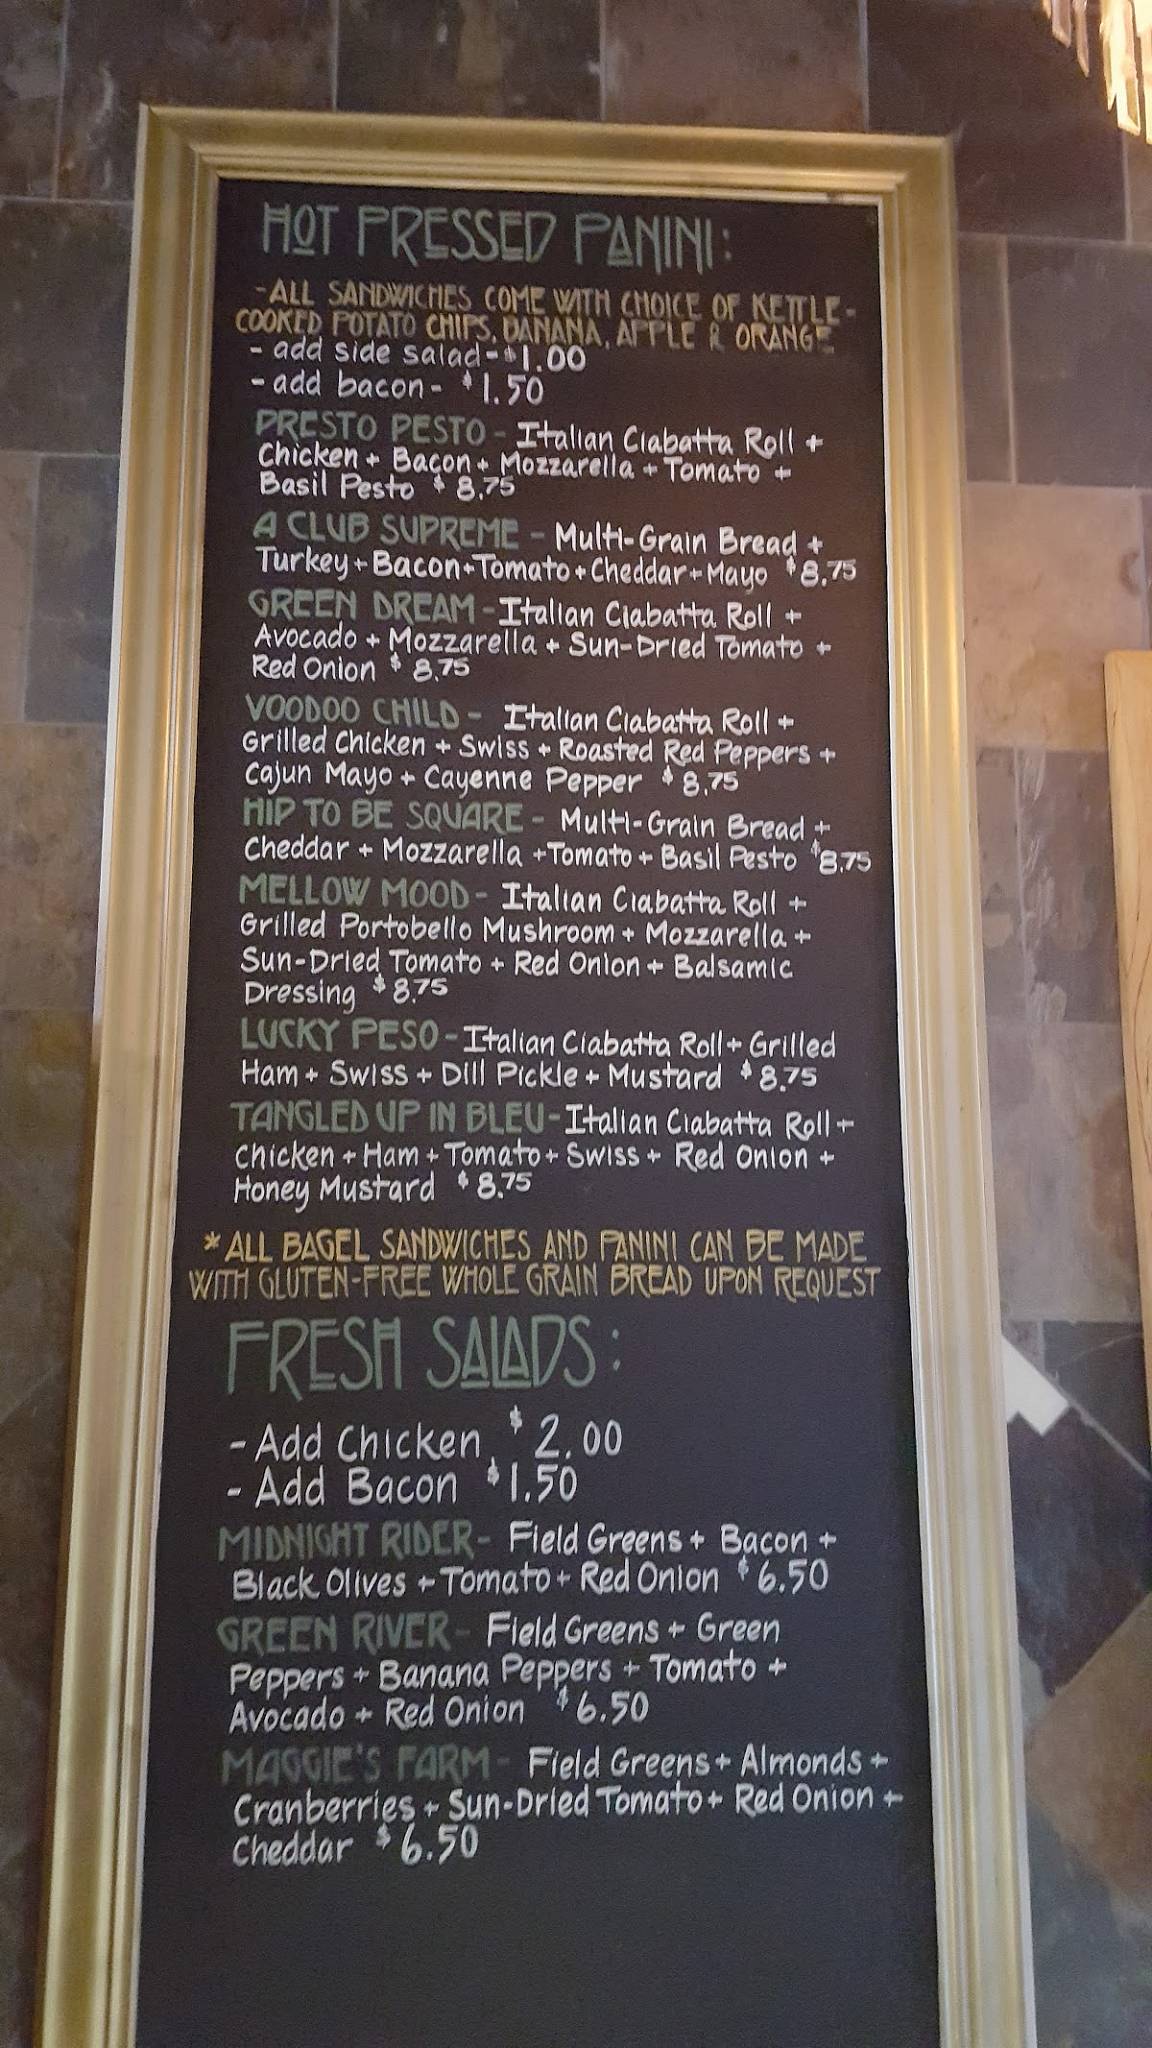 HOT PRESSED PANINI:
-ALL SANDWICHES COME WITH CHOICE OF KETTLE-
COOKED POTATO CHIPS, BANANA, APPLE & ORANGE
- add side salad - $1.00
- add bacon - $1.50
PRESTO PESTO - Italian Ciabatta Roll +
Chicken + Bacon + Mozzarella + Tomato +
Basil Pesto $8.75
A CLUB SUPREME - Multi-Grain Bread +
Turkey + Bacon + Tomato + Cheddar + Mayo $8.75
GREEN DREAM - Italian Ciabatta Roll +
Avocado + Mozzarella + Sun-Dried Tomato +
Red Onion $8.75
VOODOO CHILD - Italian Ciabatta Roll +
Grilled Chicken + Swiss + Roasted Red Peppers +
Cajun Mayo + Cayenne Pepper $8.75
HIP TO BE SQUARE - Multi-Grain Bread +
Cheddar + Mozzarella + Tomato + Basil Pesto $8.75
MELLOW MOOD - Italian Ciabatta Roll +
Grilled Portobello Mushroom + Mozzarella +
Sun-Dried Tomato + Red Onion + Balsamic
Dressing $8.75
LUCKY PESO - Italian Ciabatta Roll + Grilled
Ham + Swiss + Dill Pickle + Mustard $8.75
TANGLED UP IN BLEU - Italian Ciabatta Roll +
Chicken + Ham + Tomato + Swiss + Red Onion +
Honey Mustard $8.75
*ALL BAGEL SANDWICHES AND PANINI CAN BE MADE
WITH GLUTEN-FREE WHOLE GRAIN BREAD UPON REQUEST
FRESH SALADS:
- Add Chicken $2.00
- Add Bacon $1.50
MIDNIGHT RIDER - Field Greens + Bacon +
Black Olives + Tomato + Red Onion $6.50
GREEN RIVER - Field Greens + Green
Peppers + Banana Peppers + Tomato +
Avocado + Red Onion $6.50
MAGGIE'S FARM - Field Greens + Almonds +
Cranberries + Sun-Dried Tomato + Red Onion +
Cheddar $6.50